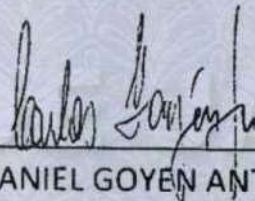 Carlos Goyén
ANIEL GOYEN ANT